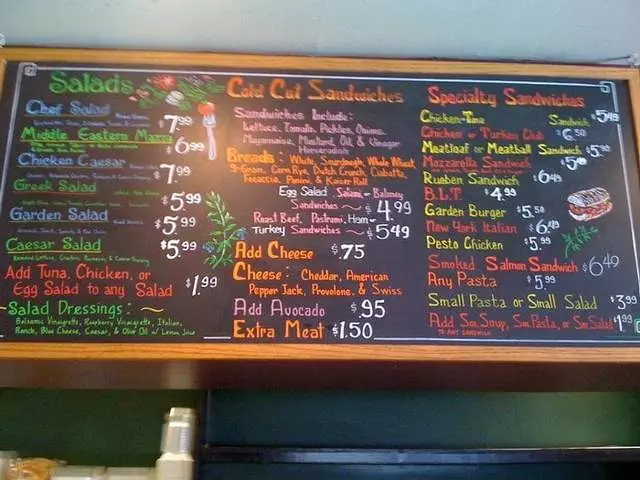 Salads
Chef Salad
$7.99
Middle Eastern Mazza
$6.99
Chicken Caesar
$7.99
Greek Salad
$5.99
Garden Salad
$5.99
Caesar Salad
$5.99
Add Tuna, Chicken, or
Egg Salad to any Salad $1.99
~Salad Dressings: ~
Balsamic Vinaigrette, Raspberry Vinaigrette, Italian,
Ranch, Blue Cheese, Caesar, & Olive Oil w/ Lemon Juice
Cold Cut Sandwiches
Sandwiches Include:
Lettuce, Tomato, Pickles, Onions,
Mayonnaise, Mustard, Oil & Vinegar
Horseradish
Breads: White, Sourdough, Whole Wheat,
9-Grain, Corn Rye, Dutch Crunch, Ciabatta,
Focaccia, Panini, & Kaiser Roll
Egg Salad Salami - Baloney
Sandwiches ~ $4.99
Roast Beef, Pastrami, Ham -
Turkey Sandwiches ~ $5.49
Add Cheese $.75
Cheese: Cheddar, American
Pepper Jack, Provolone, & Swiss
Add Avocado $.95
Extra Meat $1.50
Specialty Sandwiches
Chicken-Tuna Sandwich $5.49
Chicken or Turkey Club $6.50
Meatloaf or Meatball Sandwich $5.99
Mozzarella Sandwich
Rueben Sandwich $6.49
B.L.T. $4.99
Garden Burger $5.50
New York Italian $6.49
Pesto Chicken $5.99
Smoked Salmon Sandwich $6.49
Any Pasta $5.99
Small Pasta or Small Salad $3.99
Add Sm. Soup, Sm. Pasta, or Sm. Salad $1.99
TO ANY SANDWICH